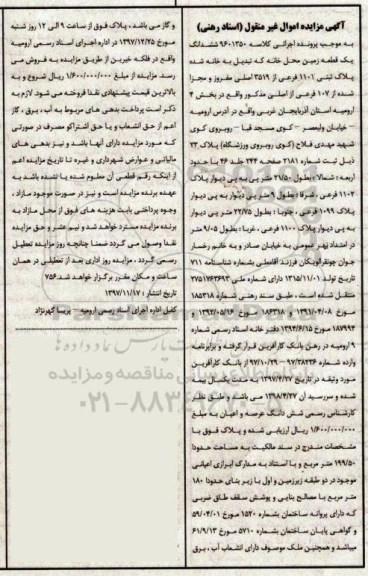 آگهی مزایده اموال غیر منقول (اسناد رهنی)
به موجب پرونده اجرائی کلاسه ۹۶۰۱۳۵۰ ششدانگ
یک قطعه زمین محل خانه که تبدیل به خانه شده
پلاک ثبتی ۱۱۰۱ فرعی از ۳۵۱۹ اصلی مفروز و مجزا
شده از ۱۰۷ فرعی از اصلی مذکور واقع در بخش ۴
ارومیه استان آذربایجان غربی واقع در آدرس ارومیه
- خیابان ولیعصر - کوی مسجد قبا - روبروی کوی
شهید مهدی فلاح (کوی روبروی ورزشگاه) پلاک ۲۳
ذیل ثبت شماره ۲۱۸۱ صفحه ۲۴۴ جلد ۴۶ با حدود
اربعه: شمالا: بطول ۲۱/۵۰ متر پی به پی دیوار پلاک
۱۱۰۲ فرعی، شرقا: بطول ۹ متر پی دیوار به پی دیوار
پلاک ۱۰۹۹ فرعی، جنوبا: بطول ۲۲/۷۵ متر پی دیوار
به پی دیوار پلاک ۱۱۰۰ فرعی، غربا: بطول ۹/۰۵ متر
در امتداد نوار عمومی به خیابان صادر و به خانم رخسار
جوان چونقرالویکان فرزند آقاملی شماره شناسنامه ۷۱۱
تاریخ تولد ۱۳۱۵/۱۱/۰۱ دارای شماره ملی ۲۷۵۱۷۶۳۶۹۳
منتقل شده است، طبق سند رهنی شماره ۱۸۵۳۱۸
مورخ ۱۳۹۱/۰۴/۰۸ و ۱۸۶۳۱۸ مورخ ۱۳۹۲/۰۵/۱۶ و
۱۸۷۹۹۴ مورخ ۱۳۹۴/۶/۱۵ دفتر خانه اسناد رسمی شماره
۹ ارومیه در رهن بانک کارآفرین قرار گرفته و برابرنامه
وارده شماره ۹۷/۳۸۳۳۶-۹۷/۱۰/۲۹ از بانک کارآفرین
مورد وثیقه در تاریخ ۱۳۹۷/۴/۲۷ به مدت یکسال بیمه
شده و سررسید آن ۱۳۹۸/۴/۲۷ می باشد و طبق نظر
کارشناس رسمی شش دانگ عرصه و اعیان به مبلغ
۱/۶۰۰/۰۰۰/۰۰۰ ریال ارزیابی شده و پلاک فوق با
مشخصات مندرج در سند مالکیت به مساحت حدودا
۱۹۹/۵۰ متر مربع و با استناد به مدارک ابرازی اعیانی
موجود در دو طبقه زیرزمین و اول با زیر بنای حدودا ۱۸۰
متر مربع با مصالح بنایی و پوشش سقف طاق ضربی
که دارای پروانه ساختمان بشماره ۱۵۲۰ مورخ ۵۹/۰۴/۰۱
و گواهی پایان ساختمان بشماره ۵۷۱۰ مورخ ۶۱/۹/۱۳
میباشد و همچنین ملک موصوف دارای انشعاب آب، برق
و گاز می باشد، پلاک فوق از ساعت ۹ الی ۱۲ روز شنبه
مورخ ۱۳۹۷/۱۲/۲۵ در اداره اجرای اسناد رسمی ارومیه
واقع در فلکه خیرین از طریق مزایده به فروش می
رسد. مزایده از مبلغ ۱/۶۰۰/۰۰۰/۰۰۰ ریال شروع و به
بالاترین قیمت پیشنهادی نقدا فروخته می شود. لازم به
ذکر است پرداخت بدهی های مربوط به آب، برق، گاز
اعم از حق انشعاب و یا حق اشتراکو مصرف در صورتی
که مورد مزایده دارای آنها باشد و نیز بدهی های
مالیاتی و عوارض شهرداری و غیره تا تاریخ مزایده اعم
از اینکه رقم قطعی آن معلوم شده یا نشده باشد به
عهده برنده مزایده است و نیز در صورت موجود مازاد،
وجوه پرداختی بابت هزینه های فوق از محل مازاد به
برنده مزایده مسترد خواهد شد و نیم عشر و حق مزایده
نقدا وصول می گردد ضمنا چنانچه روز مزایده تعطیل
رسمی گردد، مزایده روز اداری بعد از تعطیلی در همان
ساعت و مکان مقرر برگزار خواهد شد.۷۵۶
تاریخ انتشار: ۱۳۹۷/۱۱/۱۷
کفیل اداره اجرای اسناد رسمی ارومیه - پریسا گهرنژاد
پایگاه اطلاع رسانی مناقصه و مزایده